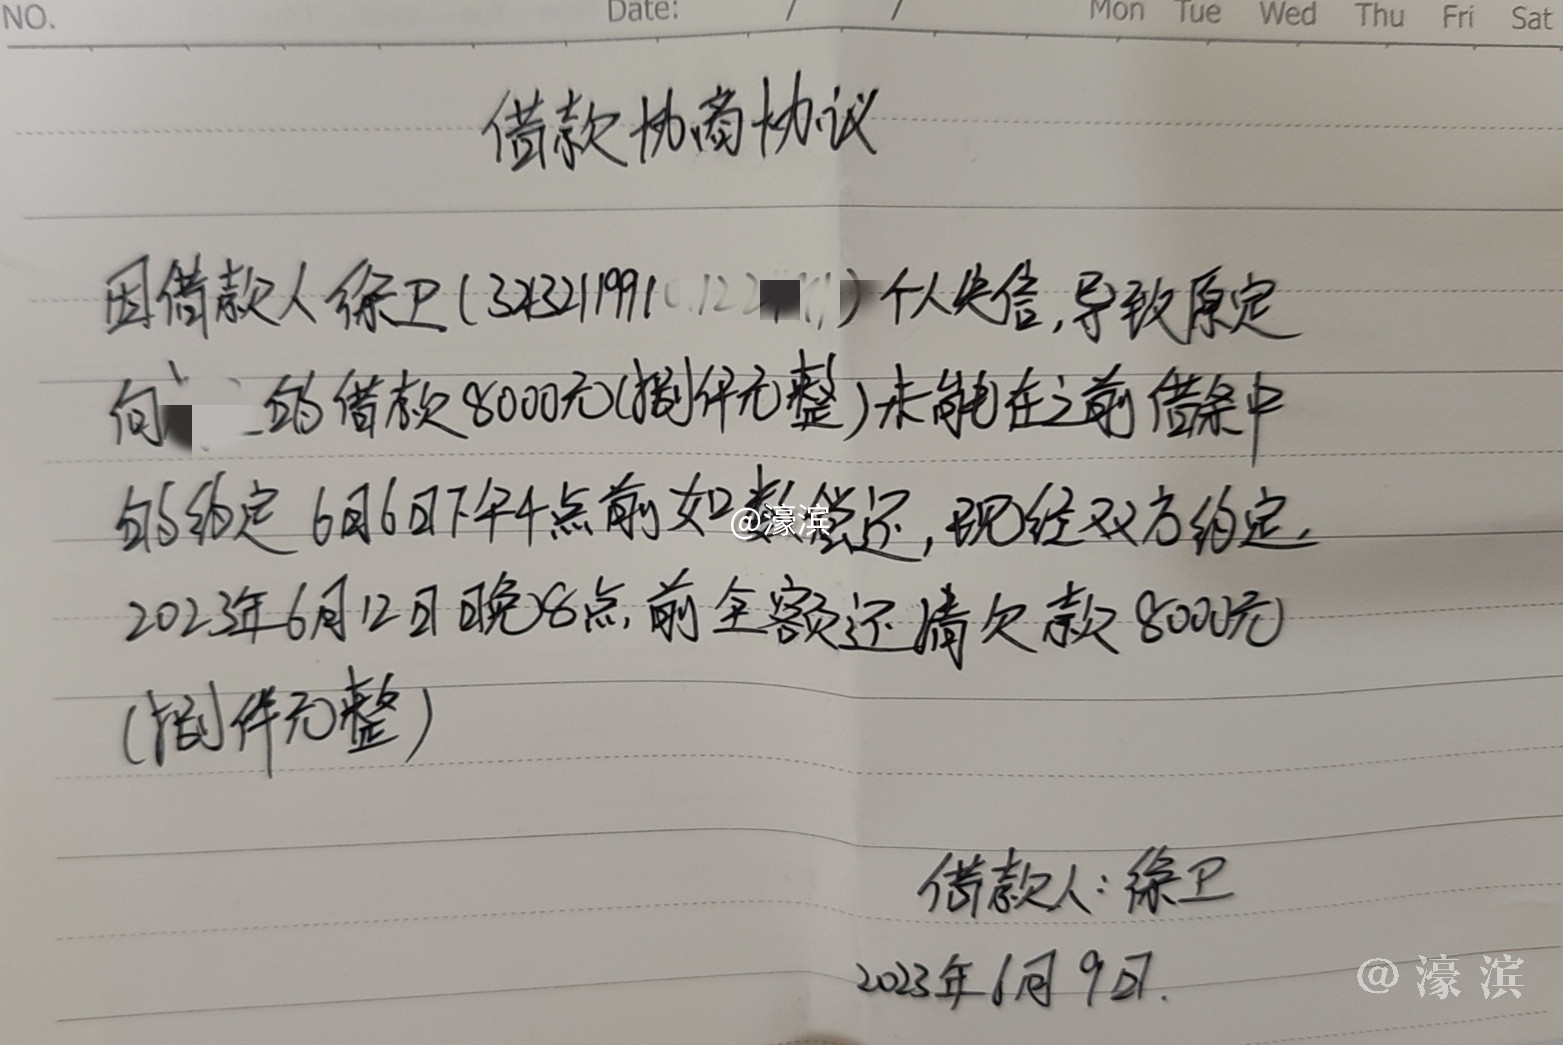 NO. Date: / / Mon Tue Wed Thu Fri Sat
借款协商协议
因借款人徐卫(3213211991 122)个人失信,导致原定
向 的借款8000元(捌仟元整)未能在之前借条中
的约定6月6日下午4点前如数偿还,现经双方约定.
@濠滨
2023年6月12日晚8点前全额还清欠款8000元
(捌仟元整)
借款人:徐卫
2023年6月9日.
@濠滨